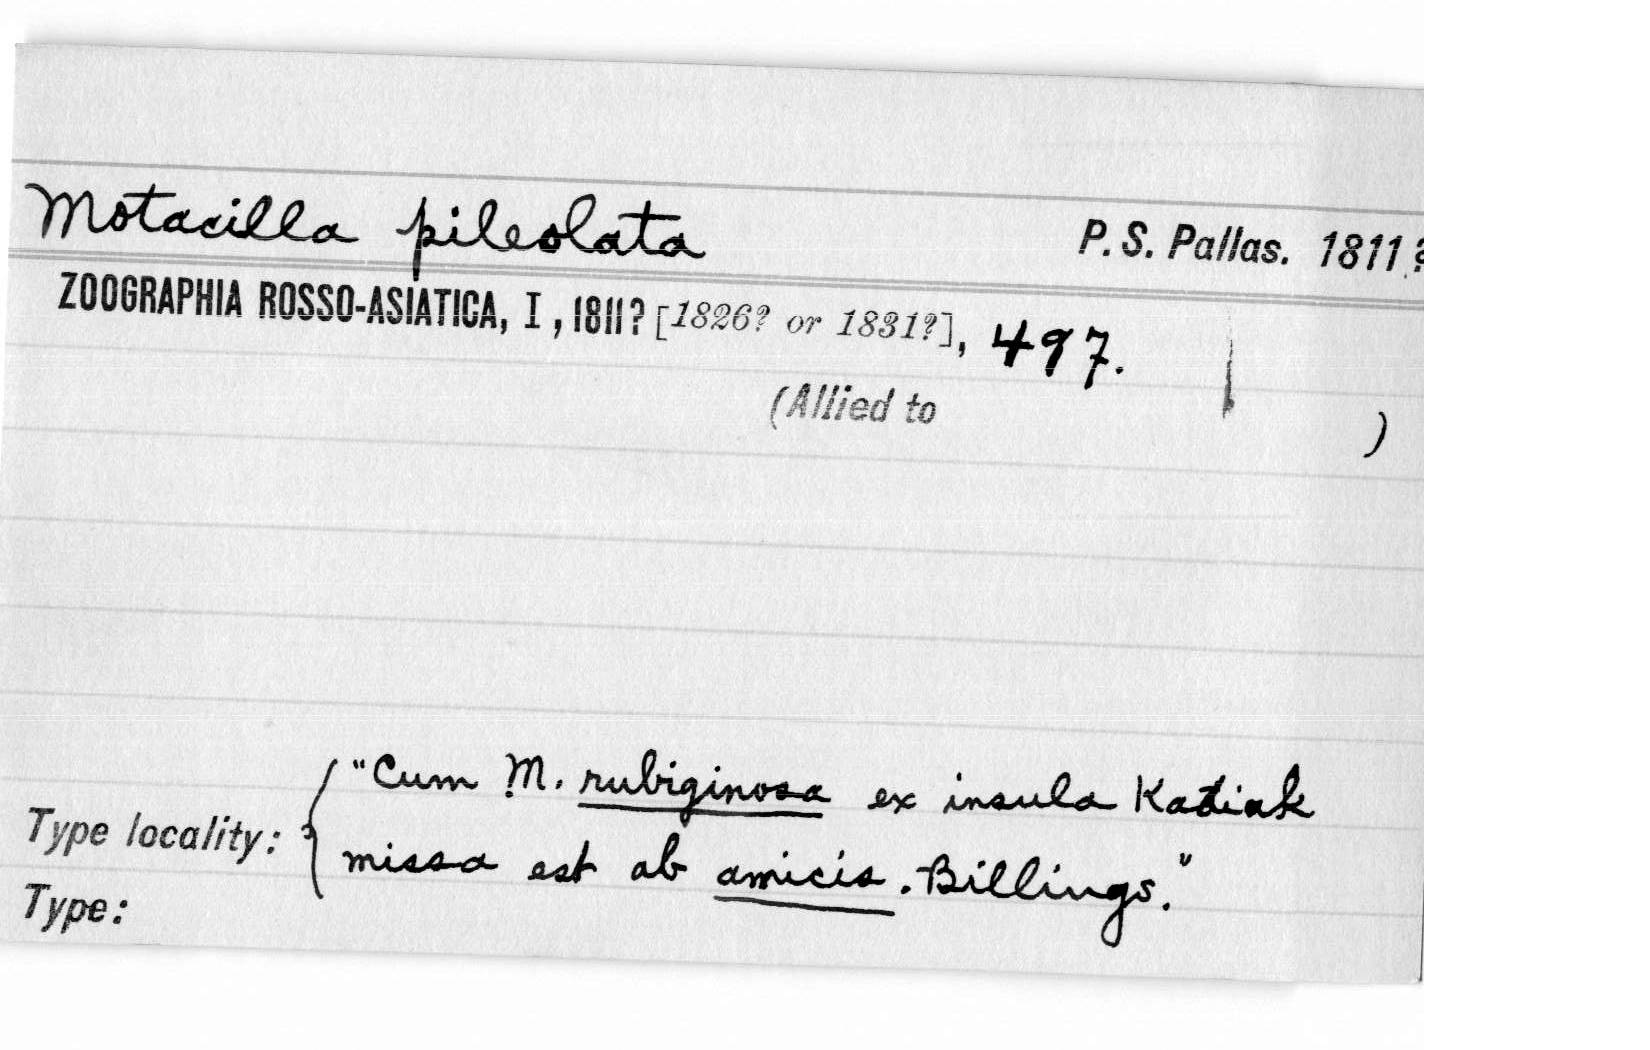 Motacilla pileolata P. S. Pallas. 1811?
ZOOGRAPHIA ROSSO-ASIATICA, I, 1811? [1826? or 1831?], 497.
(Allied to )
"Cum M. rubiginosa ex insula Kadiak
Type locality: missa est ab amicis. Billings."
Type: